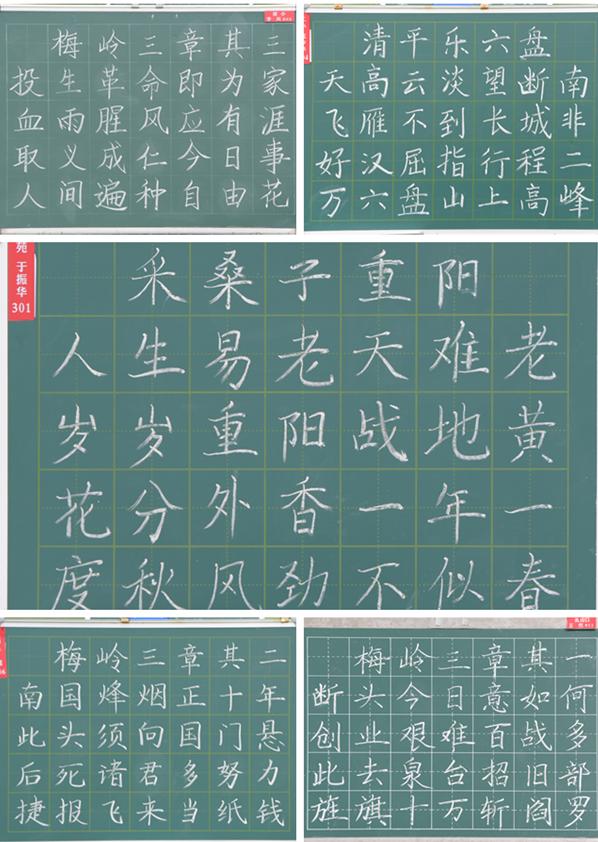 梅岭三章其三
投生革命即为家
血雨腥风应有涯
取义成仁今日事
人间遍种自由花
清平乐六盘
天高云淡望断南
飞雁不到长城非
好汉屈指行程二
万六盘山上高峰
苑 于振华
301
采桑子重阳
人生易老天难老
岁岁重阳战地黄
花分外香一年一
度秋风劲不似春
梅岭三章其二
南国烽烟正十年
此头须向国门悬
后死诸君多努力
捷报飞来当纸钱
梅岭三章其一
断头今日意如何
创业艰难百战多
此去泉台招旧部
旌旗十万斩阎罗